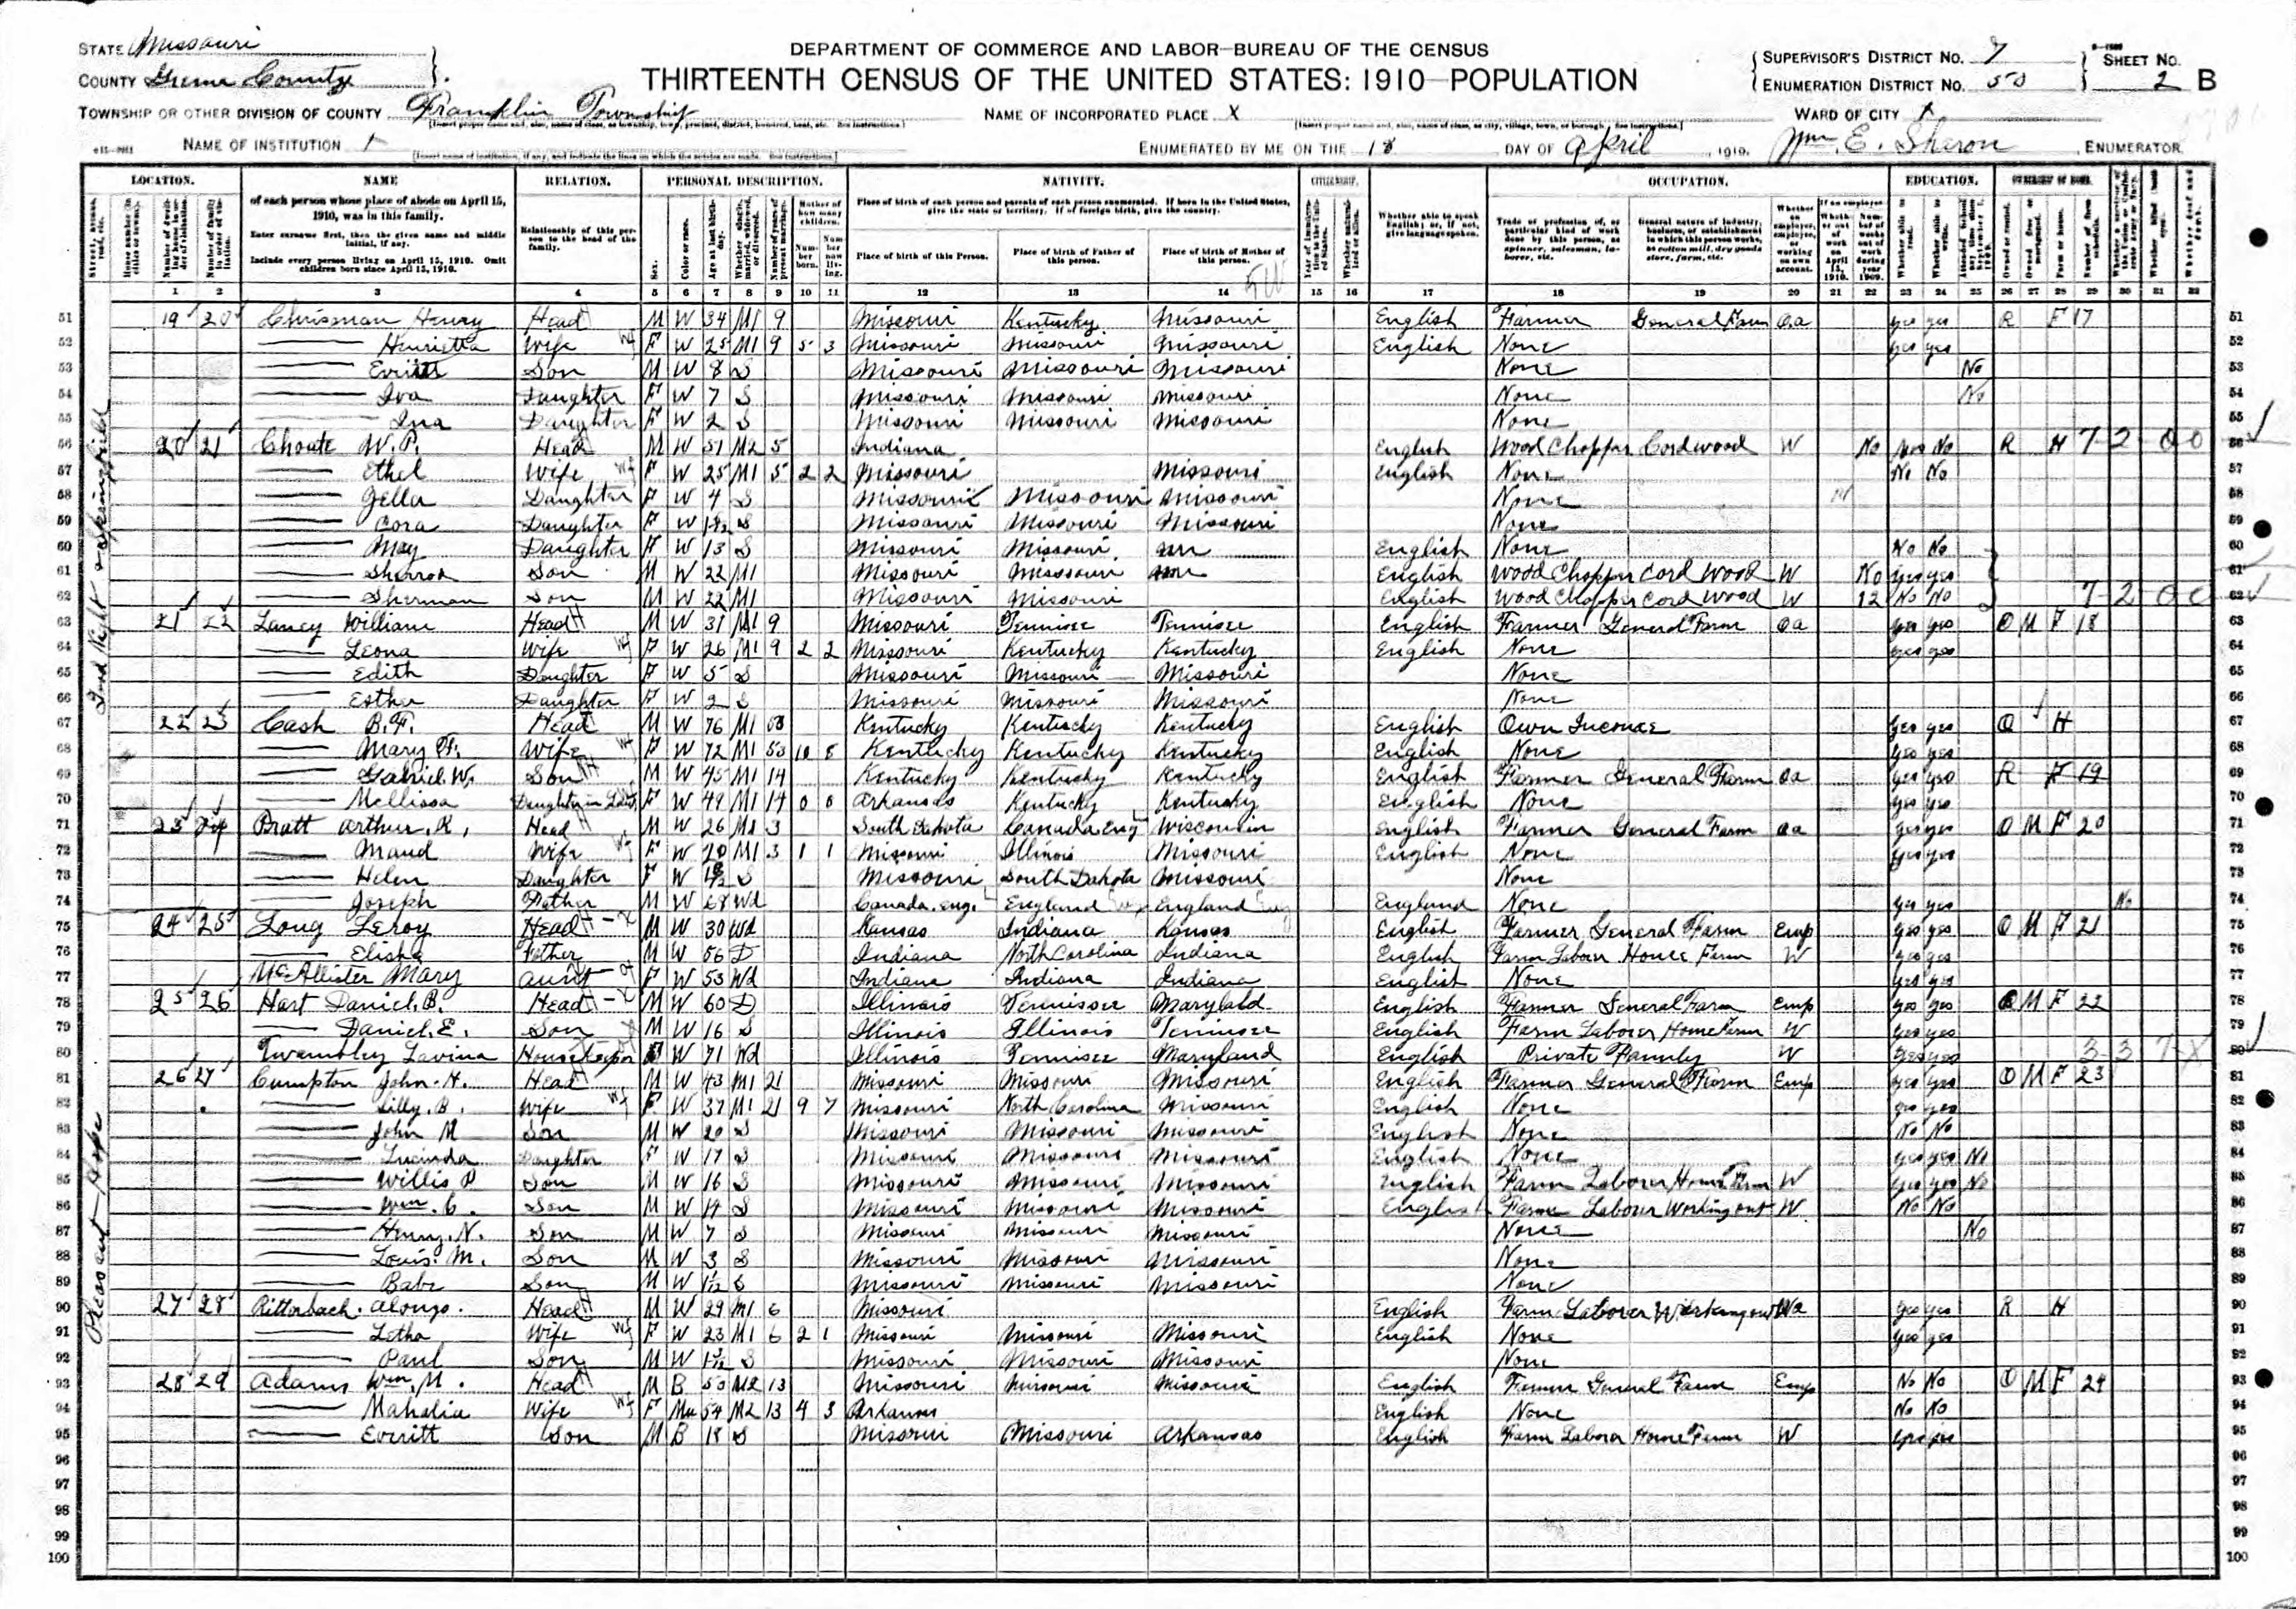 DEPARTMENT OF COMMERCE AND LABOR—BUREAU OF THE CENSUS
THIRTEENTH CENSUS OF THE UNITED STATES: 1910—POPULATION
STATE Missouri
COUNTY Greene County
TOWNSHIP OR OTHER DIVISION OF COUNTY Franklin Township
NAME OF INSTITUTION X
NAME OF INCORPORATED PLACE X
ENUMERATED BY ME ON THE 18 DAY OF April, 1910.
Wm. E. Sharon, ENUMERATOR
SUPERVISOR'S DISTRICT NO. 7
ENUMERATION DISTRICT NO. 50
SHEET NO. 2 B
WARD OF CITY X
LOCATION. NAME RELATION. PERSONAL DESCRIPTION. NATIVITY. CITIZENSHIP. OCCUPATION. EDUCATION. OWNERSHIP OF HOME.
of each person whose place of abode on April 15, 1910, was in this family.
Enter surname first, then the given name and middle initial, if any.
Include every person living on April 15, 1910. Omit children born since April 15, 1910.
Relationship of this person to the head of the family.
Place of birth of each person and parents of each person enumerated. If born in the United States, give the state or territory. If of foreign birth, give the country.
Place of birth of this Person. Place of birth of Father of this person. Place of birth of Mother of this person.
Whether able to speak English; or, if not, give language spoken.
1 2 3 4 5 6 7 8 9 10 11 12 13 14 15 16 17 18 19 20 21 22 23 24 25 26 27 28 29 30 31 32
51 19 20 Chrisman Henry Head M W 34 M1 9 Missouri Kentucky Missouri English Farmer General Farm Oa yes yes R F 17
52 Henrietta Wife F W 25 M1 9 5 3 Missouri Missouri Missouri English None yes yes
53 Everitt Son M W 8 S Missouri Missouri Missouri None No
54 Iva Daughter F W 7 S Missouri Missouri Missouri None No
55 Ina Daughter F W 2 S Missouri Missouri Missouri None
56 20 21 Choate W. P. Head M W 51 M2 5 Indiana English Wood Chopper Cordwood W No yes No R H 7 2 0 0
57 Ethel Wife F W 25 M1 5 2 2 Missouri Missouri English None No No
58 Zella Daughter F W 4 S Missouri Missouri Missouri None
59 Cora Daughter F W S Missouri Missouri Missouri None
60 May Daughter F W 13 S Missouri Missouri un English None No No
61 Sherrod Son M W 22 M1 Missouri Missouri un English Wood Chopper Cord Wood W No yes yes
62 Sherman Son M W 22 M1 Missouri Missouri English Wood Chopper Cord Wood W 12 No No 7 2 0 0
63 21 22 Laney William Head M W 31 M1 9 Missouri Tennisee Tennisee English Farmer General Farm Oa yes yes O M F 18
64 Leona Wife F W 26 M1 9 2 2 Missouri Kentucky Kentucky English None yes yes
65 Edith Daughter F W 5 S Missouri Missouri Missouri None
66 Esther Daughter F W 2 S Missouri Missouri Missouri None
67 22 23 Cash B. F. Head M W 76 M1 53 Kentucky Kentucky Kentucky English Own Income yes yes O H
68 Mary F. Wife F W 72 M1 53 10 8 Kentucky Kentucky Kentucky English None yes yes
69 Gabriel W. Son M W 45 M1 14 Kentucky Kentucky Kentucky English Farmer General Farm Oa yes yes R F 19
70 Mellissa Daughter in Law F W 49 M1 14 0 0 Arkansas Kentucky Kentucky English None yes yes
71 23 24 Pratt Arthur. R. Head M W 26 M1 3 South Dakota Canada Eng Wisconsin English Farmer General Farm Oa yes yes O M F 20
72 Maud Wife F W 20 M1 3 1 1 Missouri Illinois Missouri English None yes yes
73 Helen Daughter F W S Missouri South Dakota Missouri None
74 Joseph Father M W 68 Wd Canada. Eng. England England England None yes yes No
75 24 25 Long Leroy Head M W 30 Wd Kansas Indiana Kansas English Farmer General Farm Emp yes yes O M F 21
76 Elisha Father M W 56 D Indiana North Carolina Indiana English Farm Labour Home Farm W yes yes
77 McAllister Mary Aunt F W 53 Wd Indiana Indiana Indiana English None yes yes
78 25 26 Hart Daniel. B. Head M W 60 D Illinois Tennissee Maryland English Farmer General Farm Emp yes yes O M F 22
79 Daniel. E. Son M W 16 S Illinois Illinois Tennisee English Farm Laborer Home Farm W yes yes
80 Twembley Lavina Housekeeper F W 71 Wd Illinois Tennisee Maryland English Private Family W yes yes 3 3 7 X
81 26 27 Cumpton John. H. Head M W 43 M1 21 Missouri Missouri Missouri English Farmer General Farm Emp yes yes O M F 23
82 Lilly. B. Wife F W 37 M1 21 9 7 Missouri North Carolina Missouri English None yes yes
83 John M Son M W 20 S Missouri Missouri Missouri English None No No
84 Lucinda Daughter F W 17 S Missouri Missouri Missouri English None yes yes No
85 Willis P Son M W 16 S Missouri Missouri Missouri English Farm Laborer Home Farm W yes yes No
86 Wm. C. Son M W 14 S Missouri Missouri Missouri English Farm Labour Working out W No No
87 Henry. N. Son M W 7 S Missouri Missouri Missouri None No
88 Louis. M. Son M W 3 S Missouri Missouri Missouri None
89 Babe Son M W 1/12 S Missouri Missouri Missouri None
90 27 28 Ritterbach. Alonzo. Head M W 29 M1 6 Missouri English Farm Laborer Working out yes yes R H
91 Letha Wife F W 23 M1 6 2 1 Missouri Missouri Missouri English None yes yes
92 Paul Son M W S Missouri Missouri Missouri None
93 28 29 Adams Wm. M. Head M B 50 M2 13 Missouri Missouri Missouri English Farmer General Farm Emp No No O M F 24
94 Mahalia Wife F Mu 54 M2 13 4 3 Arkansas English None No No
95 Everitt Son M B 18 S Missouri Missouri Arkansas English Farm Laborer Home Farm W yes yes
96
97
98
99
100